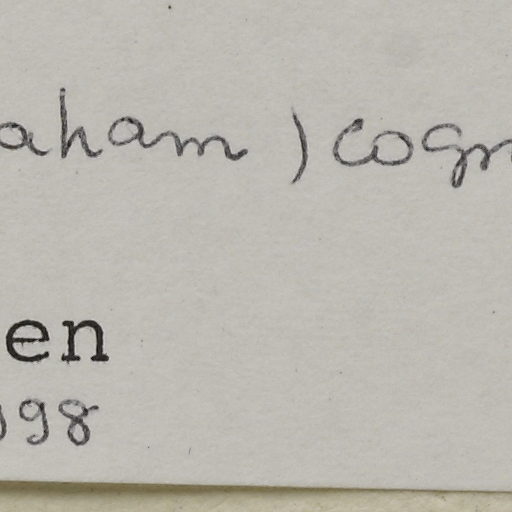 aham) cogn
en
998